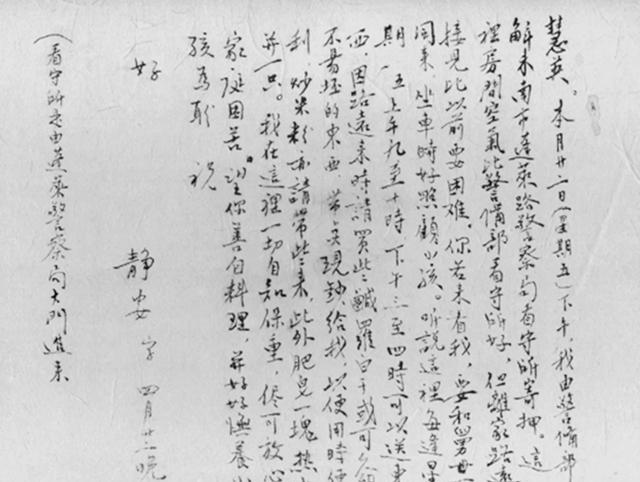 慧英。本月廿二日(星期五)下午,我由警備部
解來南市蓬萊路警察局看守所寄押。這
裡房間空氣比警備部看守所好,但離家路遠
接見比以前要困難。你若來看我,要和舅母一
同來,坐車時好照顧小孩。听說這裡每逢星
期一、五上午九至十時下午三至四時可以送東
西,因路遠來時請買些鹹蘿白干或可久
不易壞的東西,帶点現鈔給我,以便用時便
利,炒米粉亦請帶些來,此外肥皂一塊熱水
并一只。我在這裡一切自知保重,儘可放心
家庭困苦。望你善自料理,并好好撫養小
孩為盼 祝
好
靜安字 四月廿二晚
(看守所是由蓬萊警察局大門進來